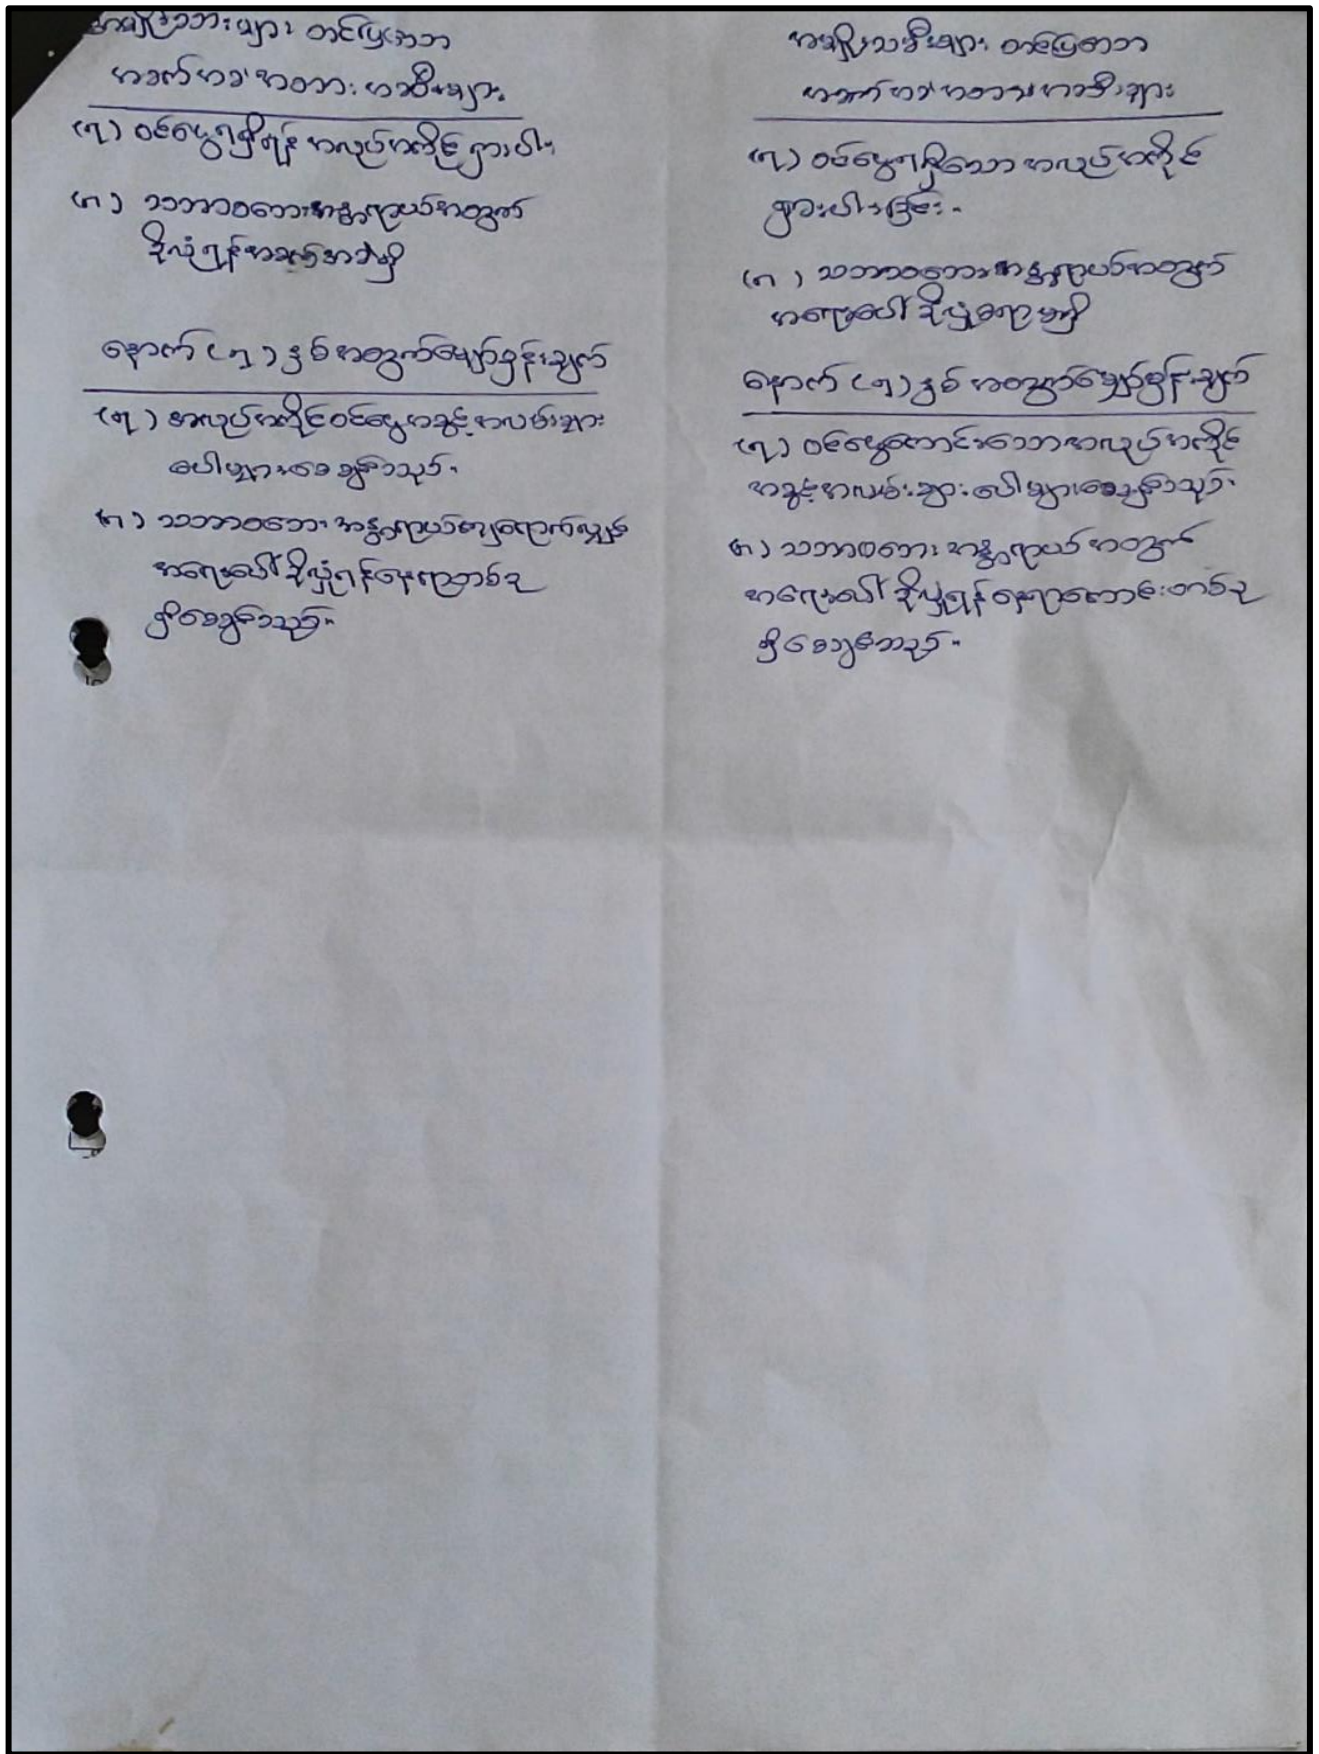 အမျိုးသားများ တင်ပြသော
အခက်အခဲ အတားအဆီးများ
(၇) ဝင်ငွေရရှိရန် အလုပ်အကိုင် ရှားပါး
(၈) သဘာဝဘေးအန္တရာယ်အတွက်
ခိုလှုံရန်အခက်အခဲရှိ
နောက် (၅) နှစ် အတွက်မျှော်မှန်းချက်
(၇) အလုပ်အကိုင်ဝင်ငွေအခွင့်အလမ်းများ
ပေါများစေချင်သည်။
(၈) သဘာဝဘေး အန္တရာယ်ကျရောက်လျှင်
အရေးပေါ်ခိုလှုံရန်နေရာတစ်ခု
ရှိစေချင်သည်။
အမျိုးသမီးများ တင်ပြသော
အခက်အခဲအတားအဆီးများ
(၇) ဝင်ငွေရရှိသော အလုပ်အကိုင်
ရှားပါးခြင်း။
(၈) သဘာဝဘေးအန္တရာယ်အတွက်
အရေးပေါ် ခိုလှုံစရာမရှိ
နောက် (၅) နှစ် အတွက်မျှော်မှန်းချက်
(၇) ဝင်ငွေကောင်းသောအလုပ်အကိုင်
အခွင့်အလမ်းများပေါများစေချင်သည်။
(၈) သဘာဝဘေး အန္တရာယ် အတွက်
အရေးပေါ် ခိုလှုံရန်နေရာကောင်းတစ်ခု
ရှိစေချင်သည်။